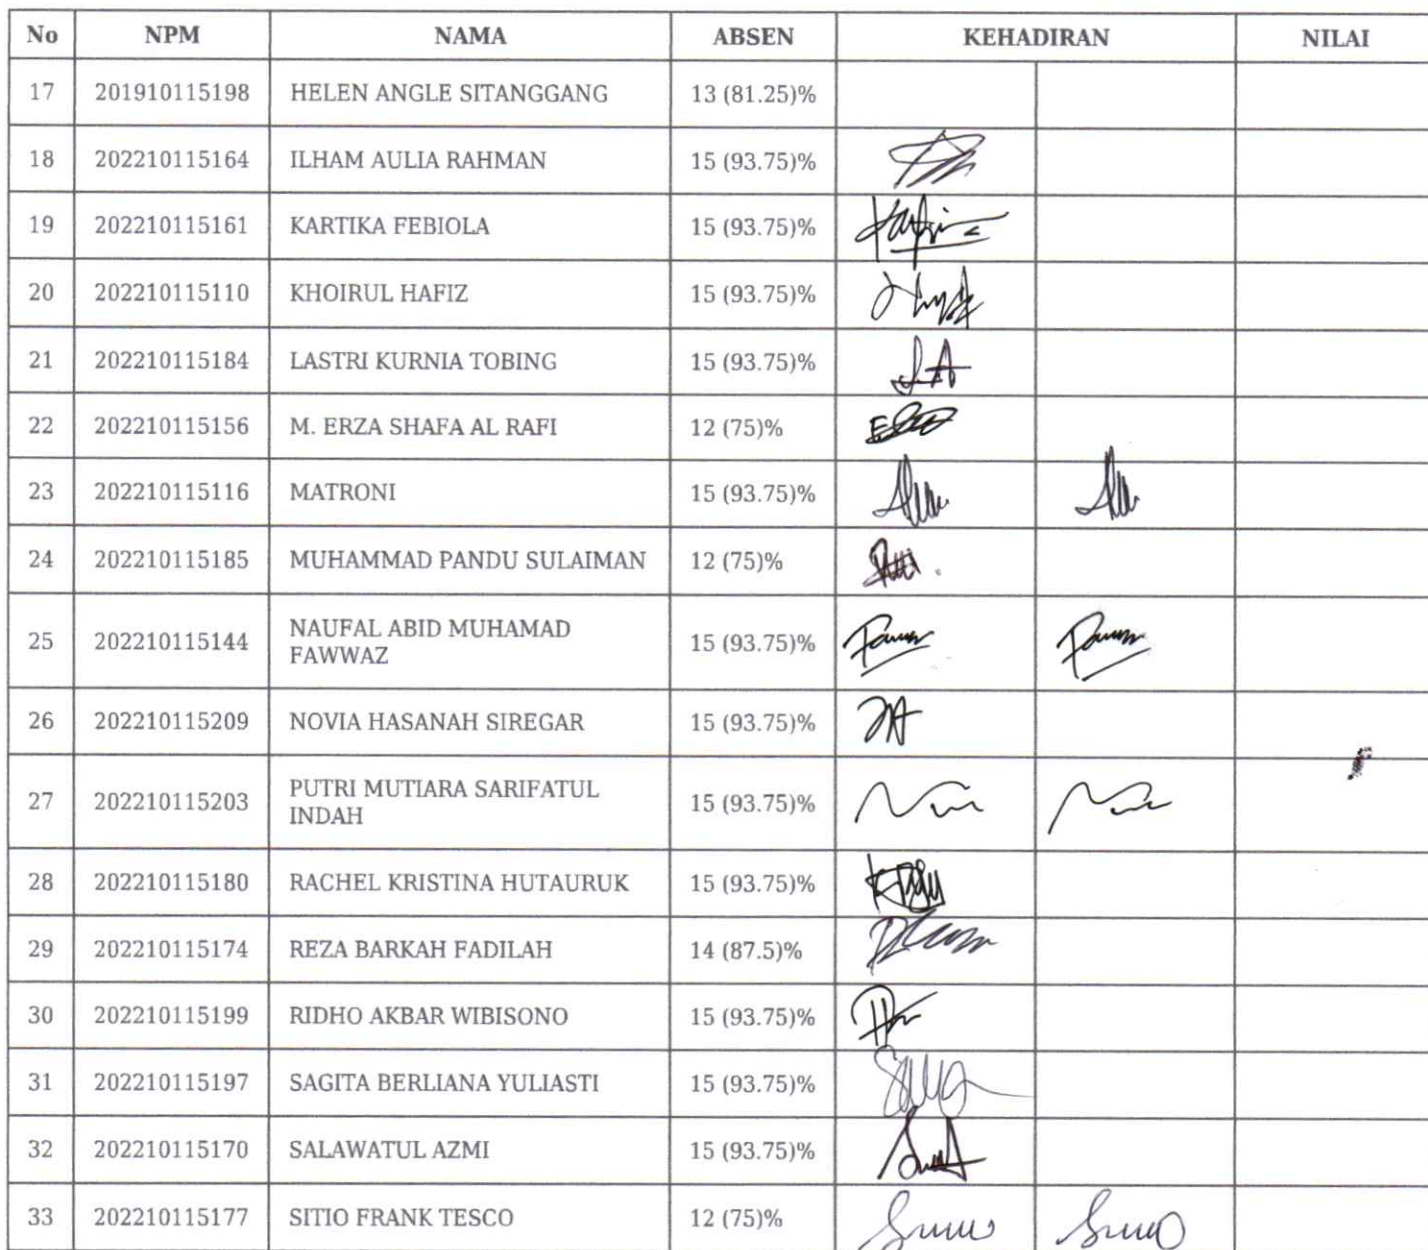 No NPM NAMA ABSEN KEHADIRAN NILAI
17 201910115198 HELEN ANGLE SITANGGANG 13 (81.25)%
18 202210115164 ILHAM AULIA RAHMAN 15 (93.75)%
19 202210115161 KARTIKA FEBIOLA 15 (93.75)%
20 202210115110 KHOIRUL HAFIZ 15 (93.75)%
21 202210115184 LASTRI KURNIA TOBING 15 (93.75)%
22 202210115156 M. ERZA SHAFA AL RAFI 12 (75)%
23 202210115116 MATRONI 15 (93.75)%
24 202210115185 MUHAMMAD PANDU SULAIMAN 12 (75)%
25 202210115144 NAUFAL ABID MUHAMAD 15 (93.75)%
FAWWAZ
26 202210115209 NOVIA HASANAH SIREGAR 15 (93.75)%
27 202210115203 PUTRI MUTIARA SARIFATUL 15 (93.75)%
INDAH
28 202210115180 RACHEL KRISTINA HUTAURUK 15 (93.75)%
29 202210115174 REZA BARKAH FADILAH 14 (87.5)%
30 202210115199 RIDHO AKBAR WIBISONO 15 (93.75)%
31 202210115197 SAGITA BERLIANA YULIASTI 15 (93.75)%
32 202210115170 SALAWATUL AZMI 15 (93.75)%
33 202210115177 SITIO FRANK TESCO 12 (75)%